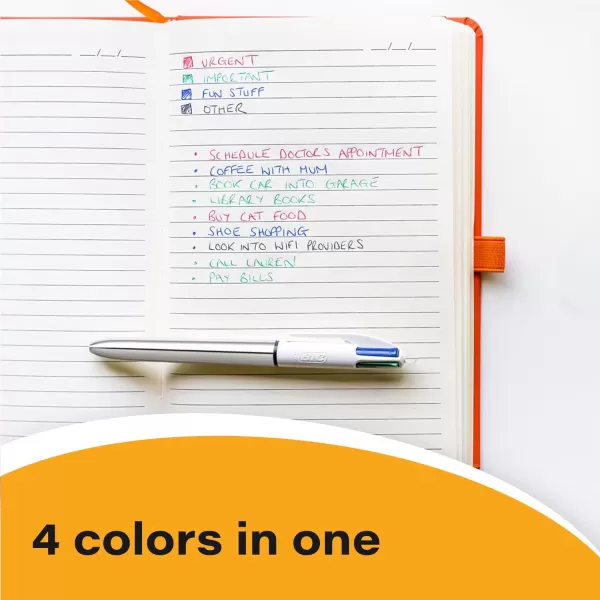 __/__/__
__/__/__
URGENT
IMPORTANT
FUN STUFF
OTHER
• SCHEDULE DOCTORS APPOINTMENT
• COFFEE WITH MUM
• BOOK CAR INTO GARAGE
• LIBRARY BOOKS
• BUY CAT FOOD
• SHOE SHOPPING
• LOOK INTO WIFI PROVIDERS
• CALL LAUREN
• PAY BILLS
BIC
4 colors in one